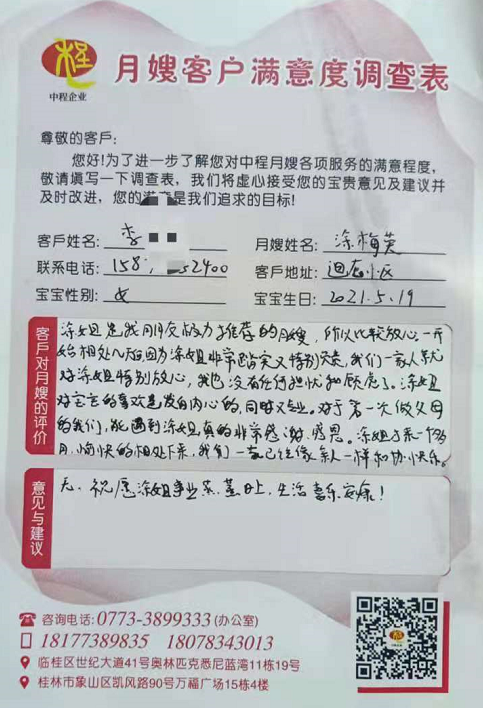 程
中程企业
月嫂客户满意度调查表
尊敬的客户:
您好!为了进一步了解您对中程月嫂各项服务的满意程度,
敬请填写一下调查表，我们将虚心接受您的宝贵意见及建议并
及时改进，您的满意是我们追求的目标!
客户姓名: 李 月嫂姓名: 涂梅英
联系电话: 158 52400 客户地址: 小区
宝宝性别: 女 宝宝生日: 2021.5.19
客户对月嫂的评价
涂姐是我朋友极力推荐的月嫂，所以比较放心。一开
始相处几天因为涂姐非常踏实又特别，我们一家人就
对涂姐特别放心，我也没有任何担忧和顾虑了。涂姐
对宝宝的喜欢是发自内心的，同时又专业。对于第一次做父母
的我们，能遇到涂姐真的非常感谢，感恩。涂姐来一个多
月，愉快的相处下来，我们一家已经像亲人一样和协快乐。
意见与建议
无。祝愿涂姐事业蒸蒸日上，生活喜乐安康!
咨询电话: 0773-3899333 (办公室)
18177389835 18078343013
临桂区世纪大道41号奥林匹克悉尼蓝湾11栋19号
桂林市象山区凯风路90号万福广场15栋4楼